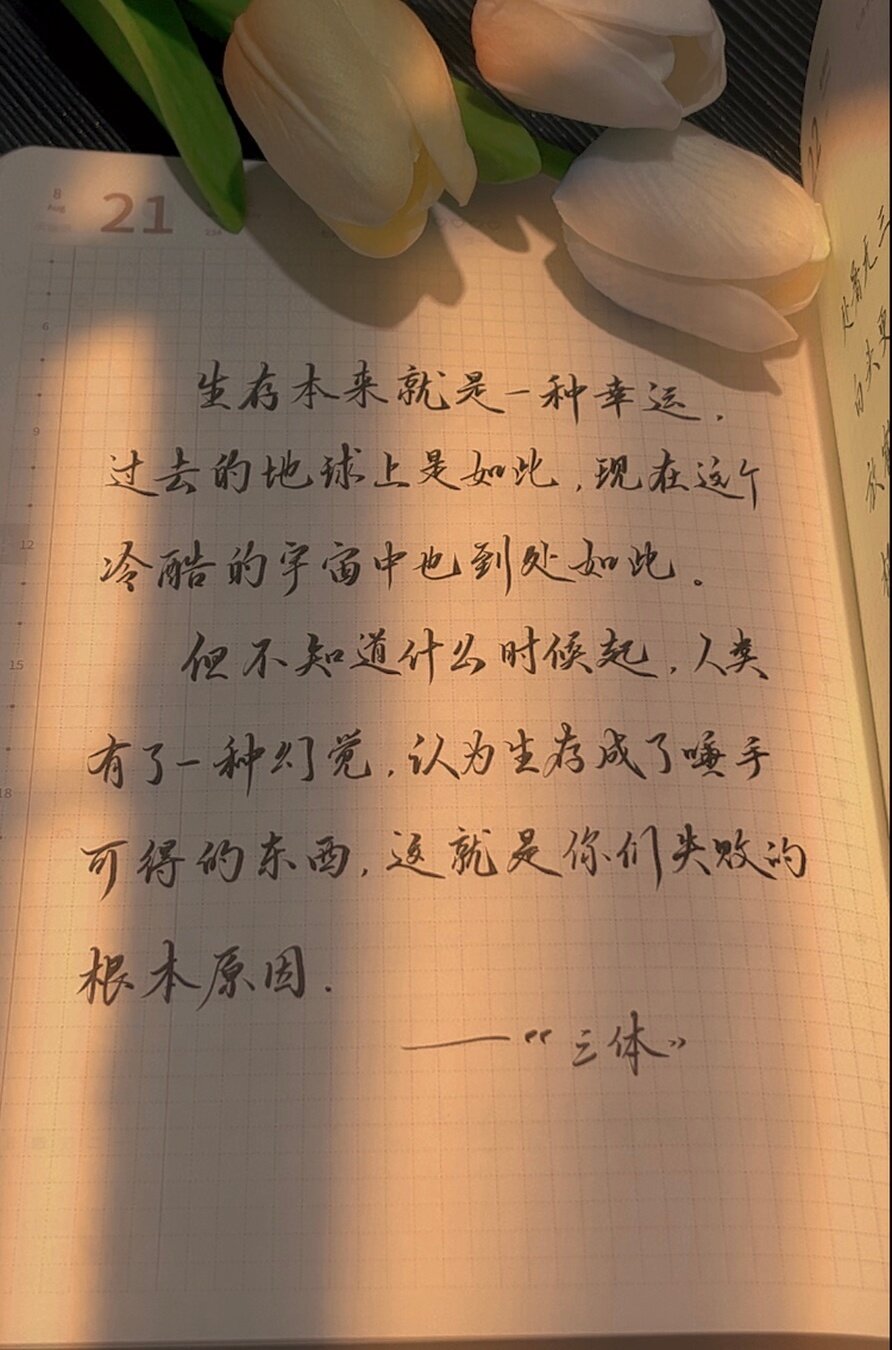 8
Aug
21
234
生存本来就是一种幸运.
过去的地球上是如此,现在这个
冷酷的宇宙中也到处如此。
但不知道什么时候起,人类
有了一种幻觉,认为生存成了唾手
可得的东西,这就是你们失败的
根本原因.
——《三体》
6
9
12
15
18
22